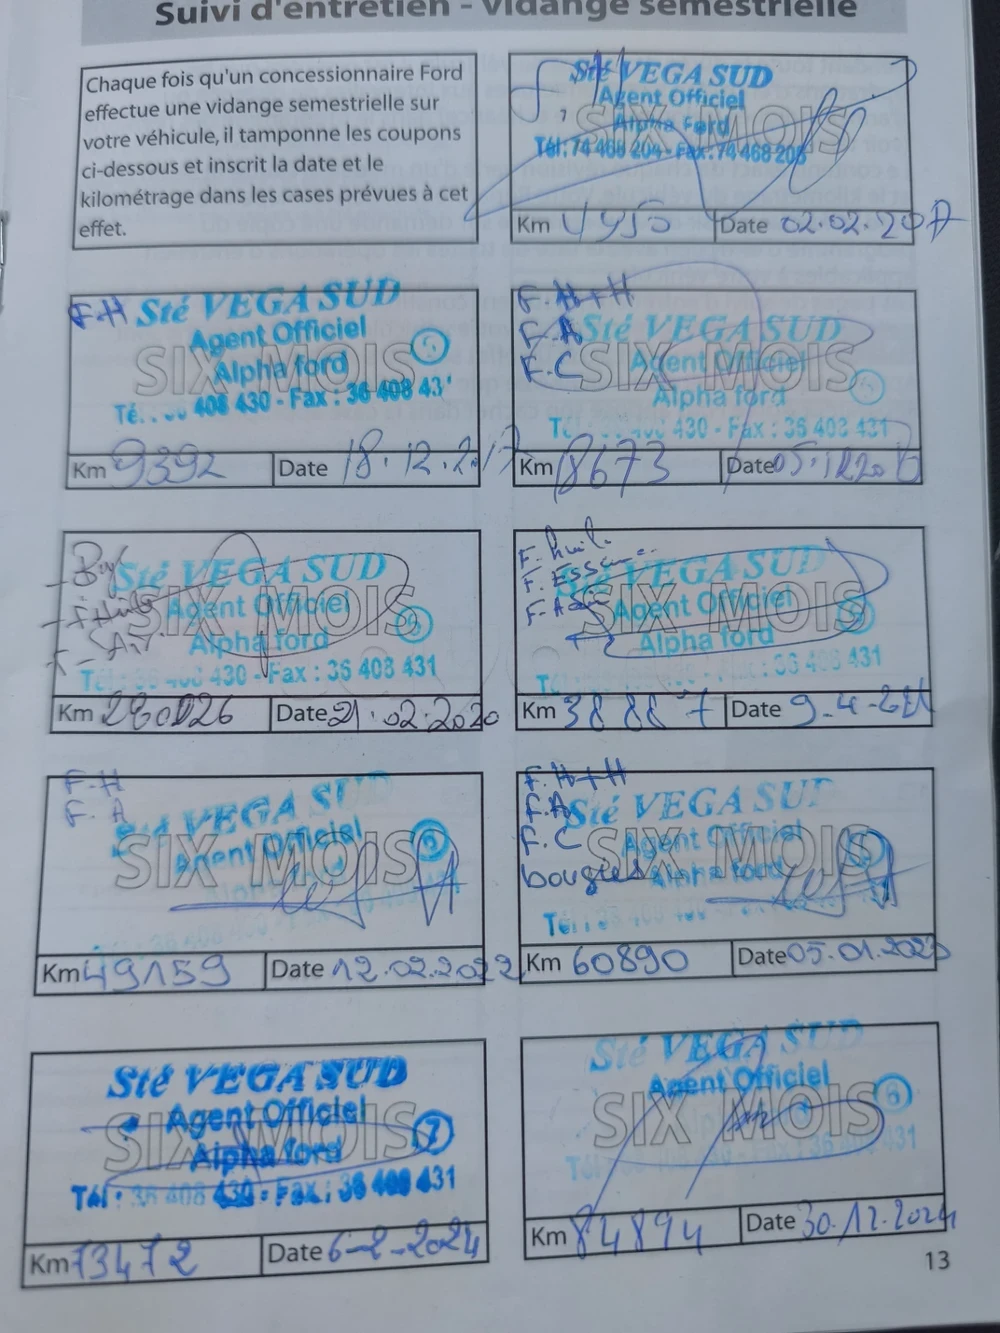 Suivi d'entretien - vidange semestrielle
Chaque fois qu'un concessionnaire Ford
effectue une vidange semestrielle sur
votre véhicule, il tamponne les coupons
ci-dessous et inscrit la date et le
kilométrage dans les cases prévues à cet
effet.
Sté VEGA SUD
Agent Officiel
Alpha Ford
SIX MOIS
Tél: 74 468 204 - Fax: 74 468 205
Km 4950 Date 02.02.2017
F.H Sté VEGA SUD
Agent Officiel
SIX MOIS
Alpha ford
408 430 - Fax : 36 408 43
Km 9392 Date 18.12.2017
F.H+H
F.A Sté VEGA SUD
F.C Agent Officiel
SIX MOIS
Alpha ford
430 - Fax : 36 408 431
Km 18673 Date
Sté VEGA SUD
Agent Officiel
SIX MOIS
Alpha ford
430 - Fax : 36 408 431
Km Date 21.02.2020
F. huile
F. Essence
Sté VEGA SUD
Agent Officiel
SIX MOIS
Alpha ford
36 408 431
Km 38887 Date 9-4-2021
F.H
F.A
Sté VEGA SUD
Agent Officiel
SIX MOIS
Km 49159 Date 12.02.2022
F.H+H
F.A Sté VEGA SUD
F.C Agent Officiel
SIX MOIS
bougies Alpha ford
Km 60890 Date 05.01.2023
Sté VEGA SUD
Agent Officiel
SIX MOIS 7
Alpha ford
Tél : 36 408 430 - Fax : 36 408 431
Km 73472 Date 6-2-2024
Sté VEGA SUD
Agent Officiel
SIX MOIS 8
Km 84894 Date 30.12.2024
13